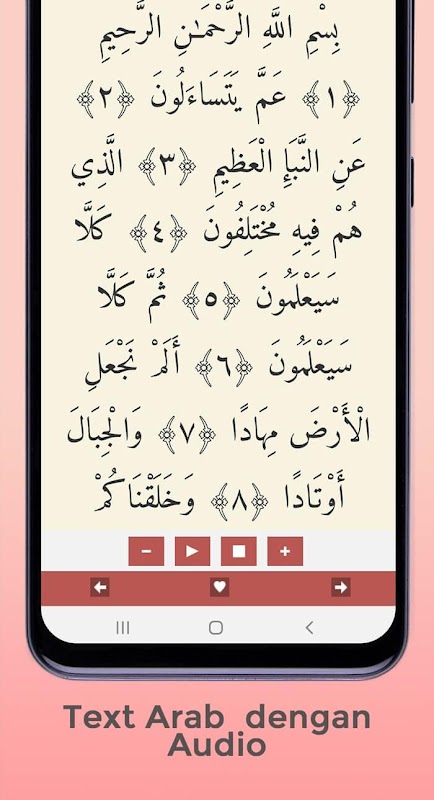 بِسْمِ اللَّهِ الرَّحْمَٰنِ الرَّحِيمِ
﴿١﴾ عَمَّ يَتَسَاءَلُونَ ﴿٢﴾
عَنِ النَّبَإِ الْعَظِيمِ ﴿٣﴾ الَّذِي
هُمْ فِيهِ مُخْتَلِفُونَ ﴿٤﴾ كَلَّا
سَيَعْلَمُونَ ﴿٥﴾ ثُمَّ كَلَّا
سَيَعْلَمُونَ ﴿٦﴾ أَلَمْ نَجْعَلِ
الْأَرْضَ مِهَادًا ﴿٧﴾ وَالْجِبَالَ
أَوْتَادًا ﴿٨﴾ وَخَلَقْنَاكُمْ
Text Arab dengan
Audio